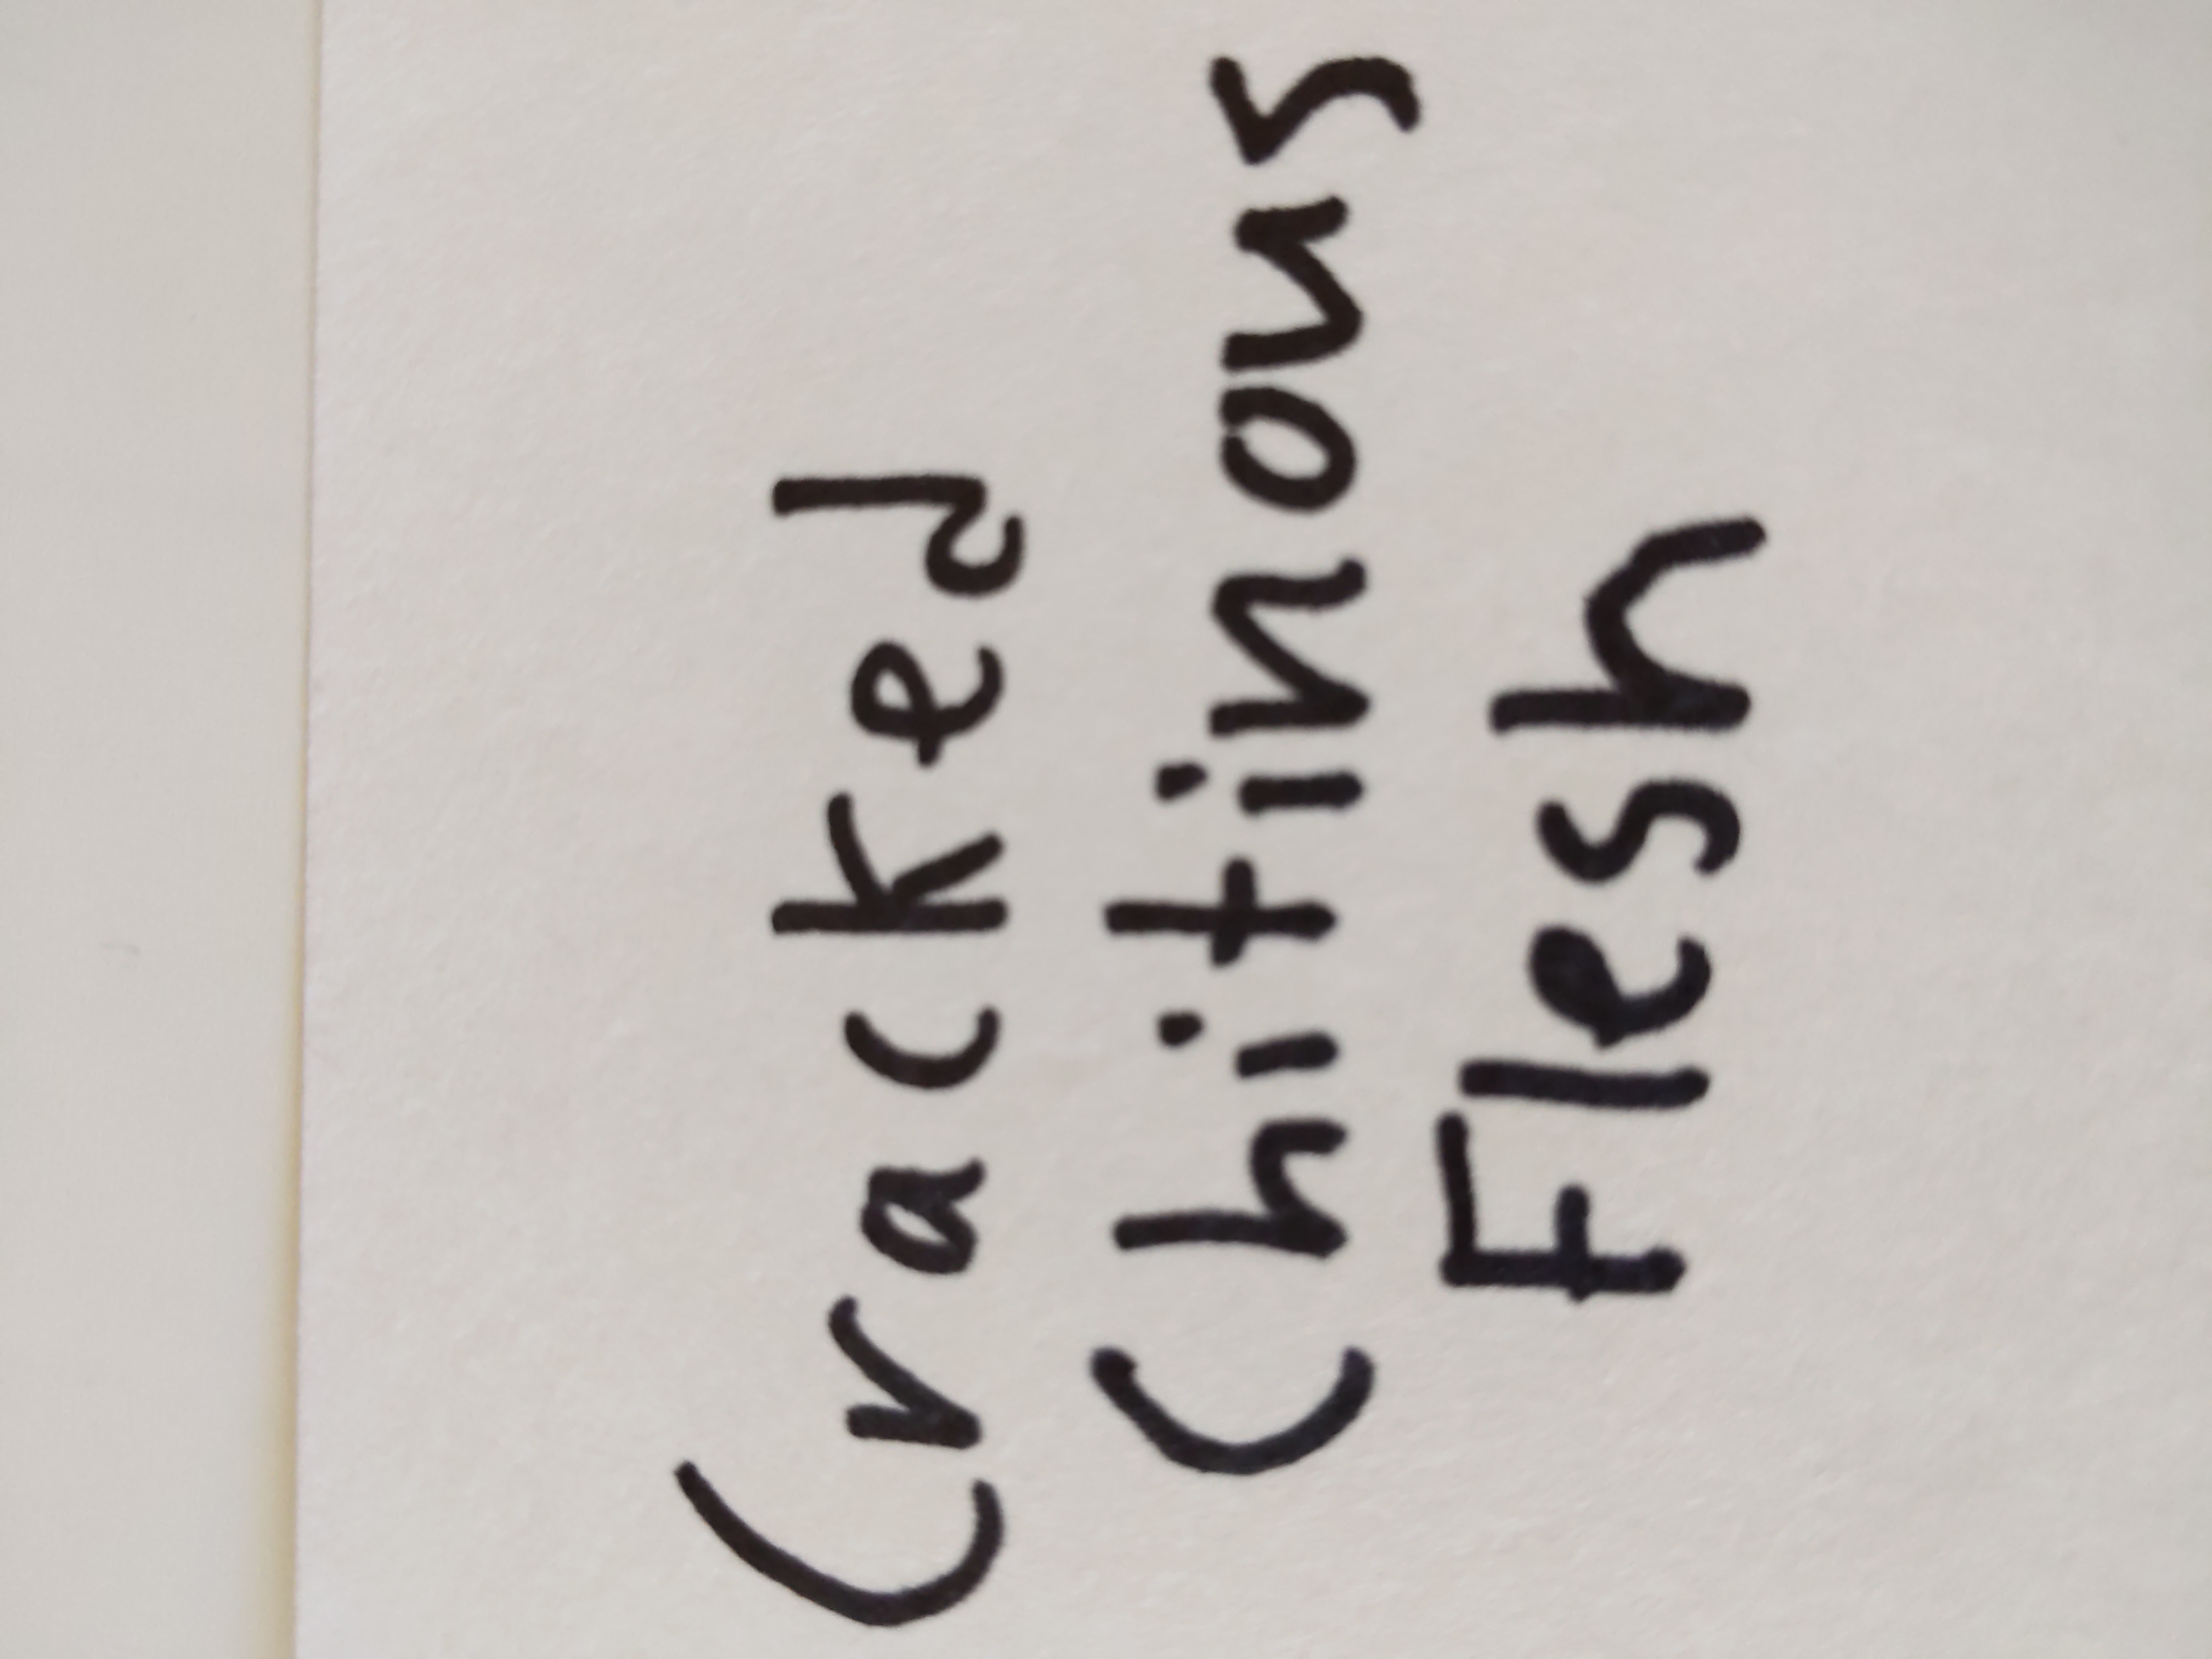 Cracked
Chitinous
Flesh